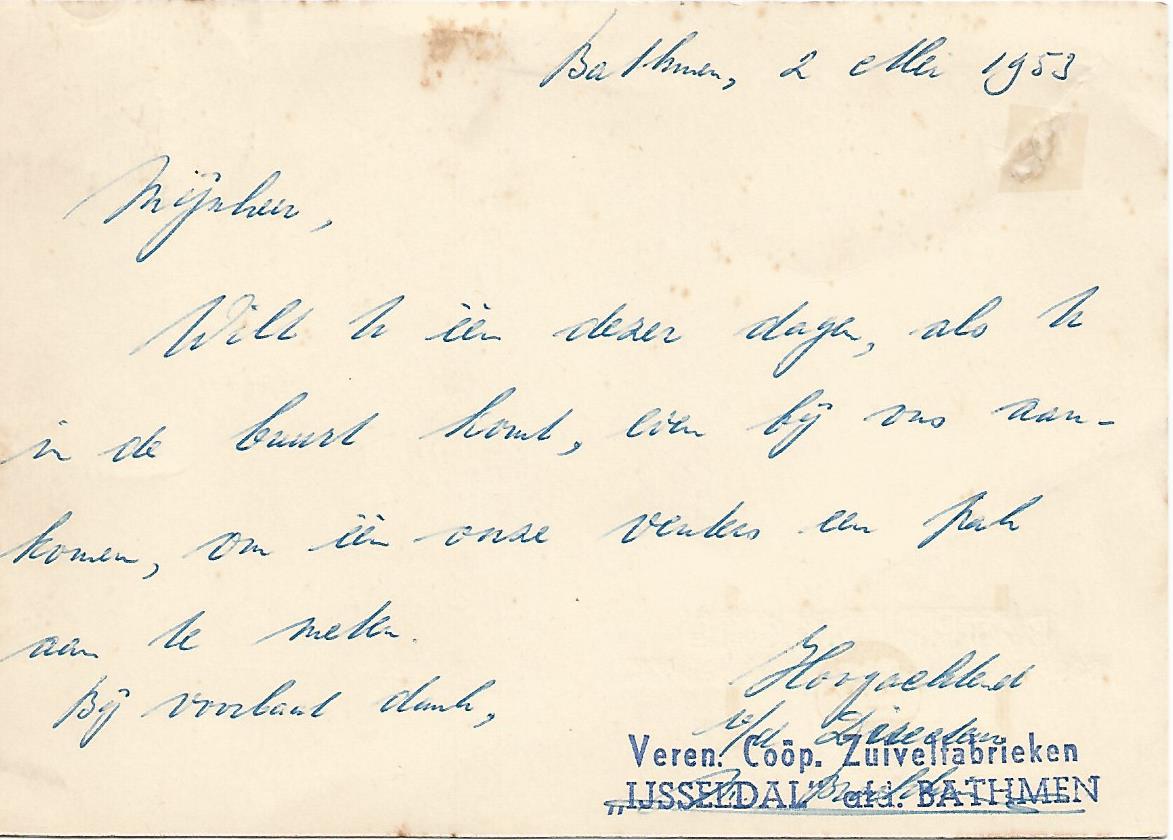 Bathmen, 2 Mei 1953
Mijnheer,
Wilt U één dezer dagen, als U
in de buurt komt, even bij ons aan-
komen, om één onze venters een pak
aan te meten.
Bij voorbaat dank,
Hoogachtend
v/d Directeur
Veren. Coöp. Zuivelfabrieken
„IJSSELDAL" afd. BATHMEN